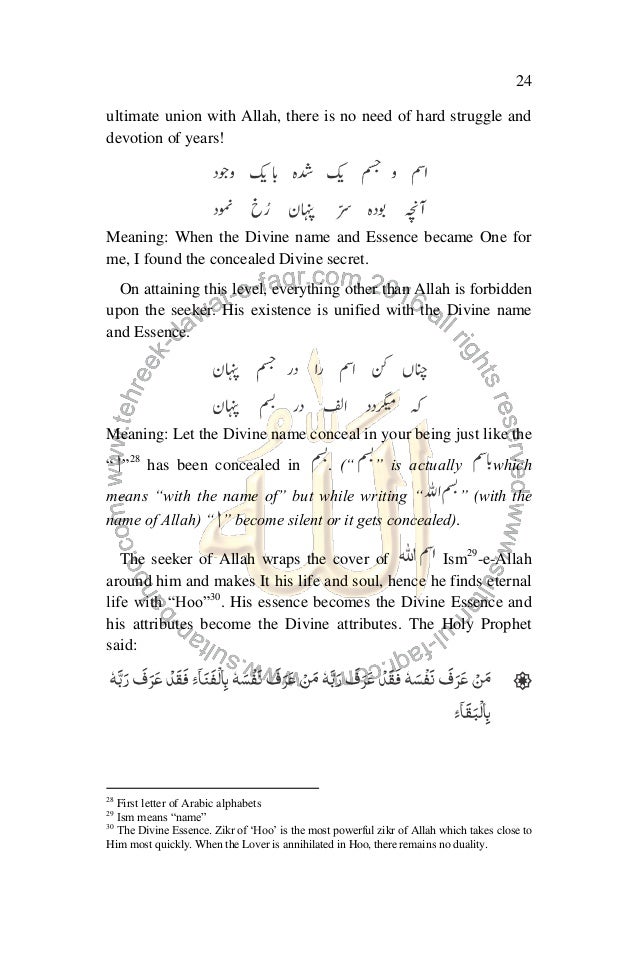 24
ultimate union with Allah, there is no need of hard struggle and
devotion of years!
اسم و جسم یک شدہ با یک وجود
آنچہ بودہ سرّ پنہاں رُخ نمود
Meaning: When the Divine name and Essence became One for
me, I found the concealed Divine secret.
On attaining this level, everything other than Allah is forbidden
upon the seeker. His existence is unified with the Divine name
and Essence.
چناں کن اسم را در جسم پنہاں
کہ میگردد الف در بسم پنہاں
Meaning: Let the Divine name conceal in your being just like the
“ا”28 has been concealed in بسم. (“بسم” is actually باسم which
means “with the name of” but while writing “بسم اللہ” (with the
name of Allah) “ا” become silent or it gets concealed).
The seeker of Allah wraps the cover of اسم اللہ Ism29-e-Allah
around him and makes It his life and soul, hence he finds eternal
life with “Hoo”30. His essence becomes the Divine Essence and
his attributes become the Divine attributes. The Holy Prophet
said:
مَنْ عَرَفَ نَفْسَهٗ فَقَدْ عَرَفَ رَبَّهٗ مَنْ عَرَفَ نَفْسَهٗ بِالْفَنَآءِ فَقَدْ عَرَفَ رَبَّهٗ
بِالْبَقَآءِ
28 First letter of Arabic alphabets
29 Ism means “name”
30 The Divine Essence. Zikr of ‘Hoo’ is the most powerful zikr of Allah which takes close to
Him most quickly. When the Lover is annihilated in Hoo, there remains no duality.
www.tehreek-dawat-e-faqr.com 2016 all rights reserved